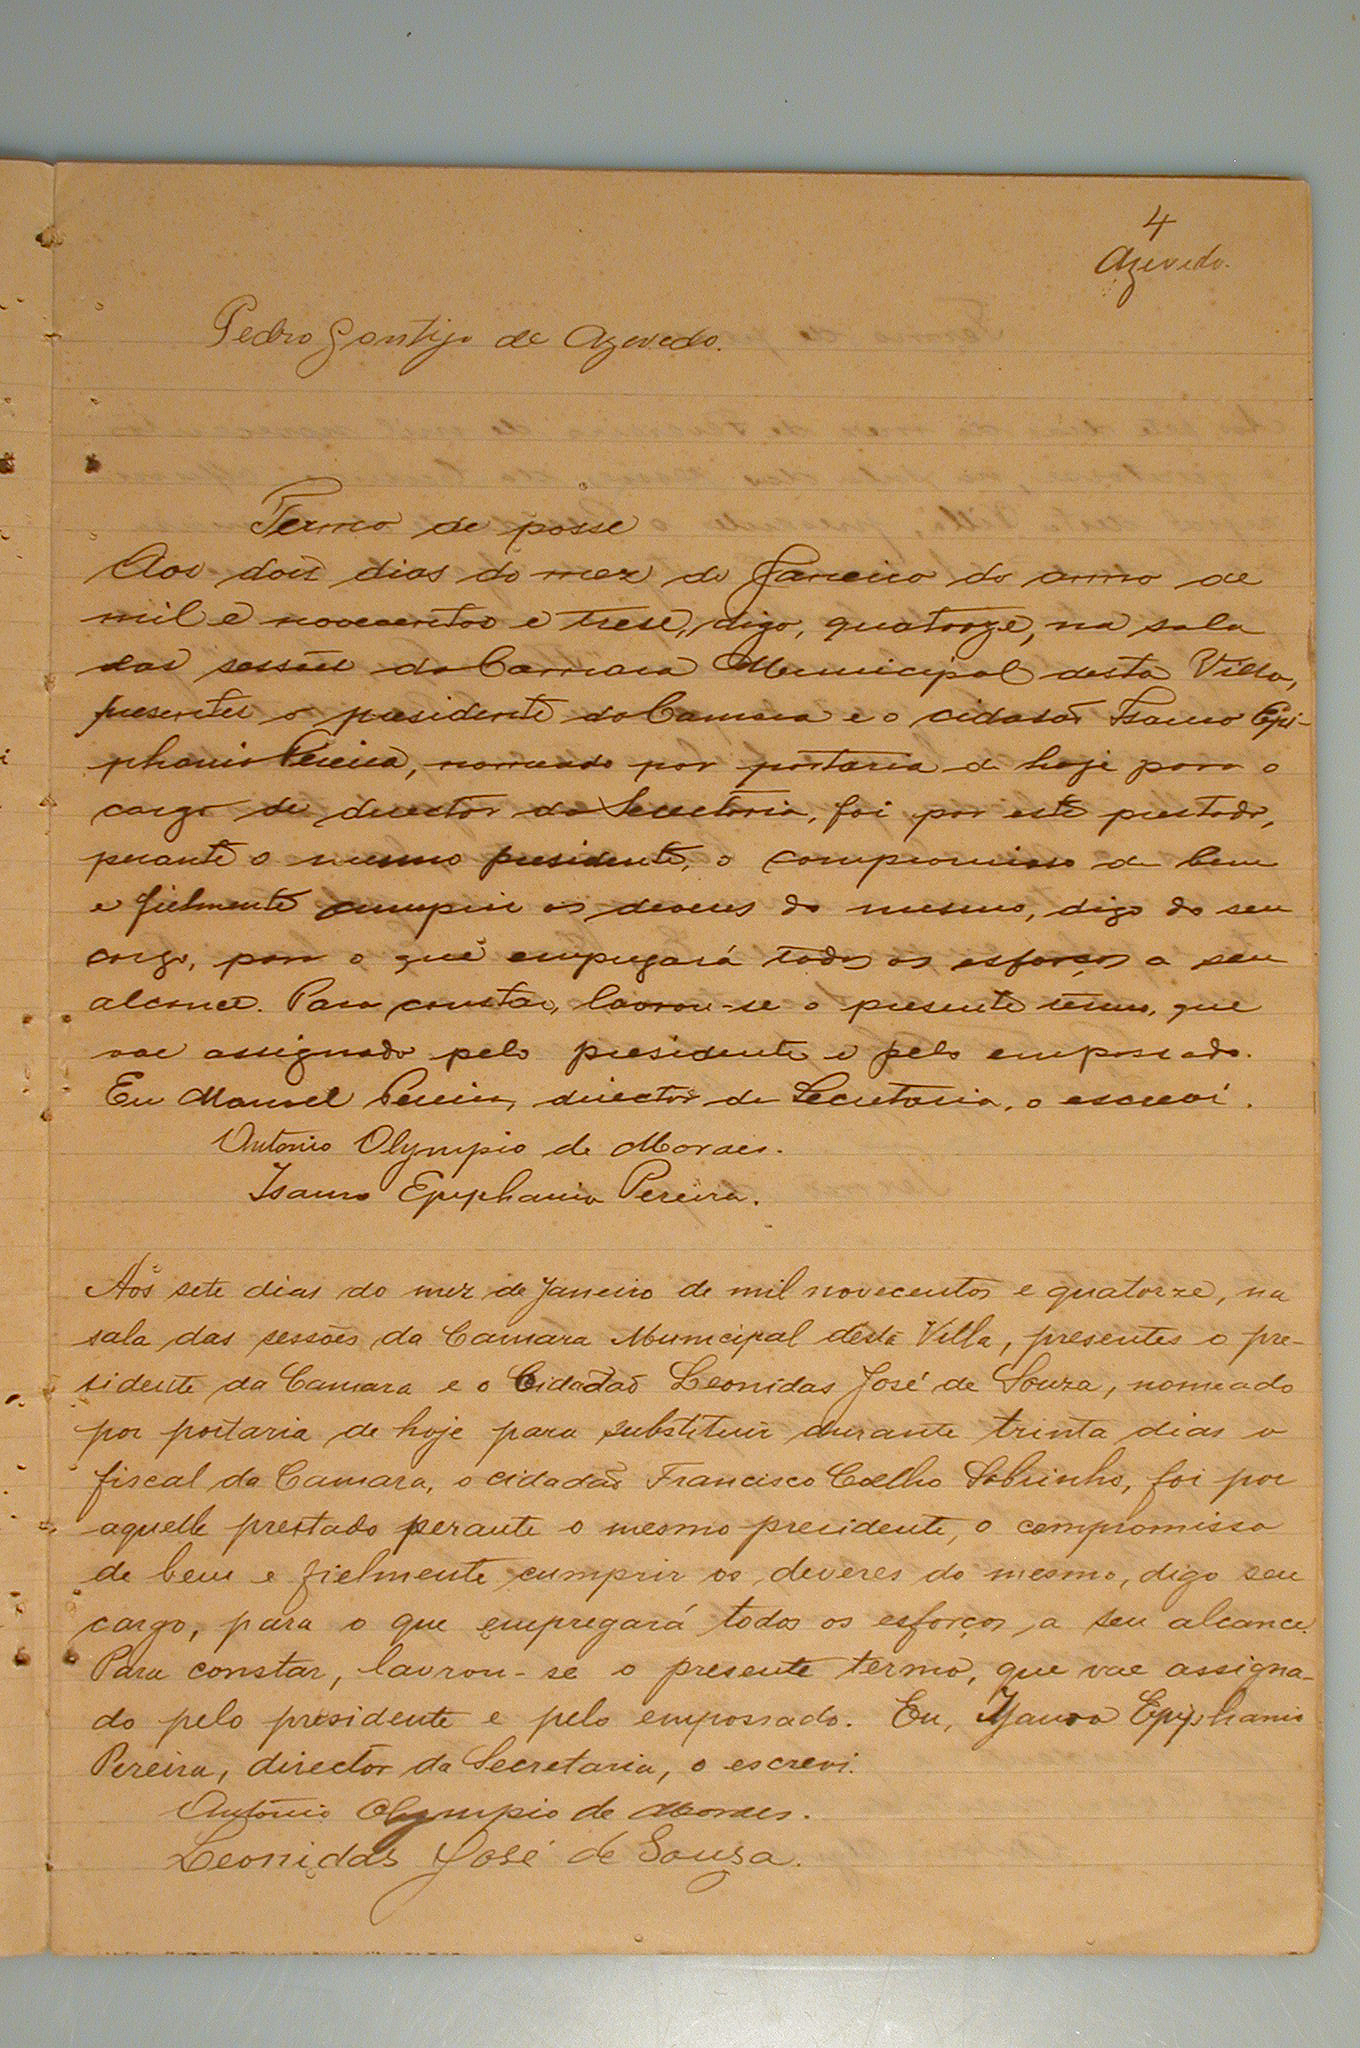 4
Azevedo.
Pedro Gontijo de Azevedo.
Termo de posse
Aos dois dias do mez de Janeiro do anno de
mil e novecentos e trese, digo, quatorze, na sala
das sessões da Camara Municipal desta Villa,
presentes o presidente da Camara e o cidadão Isauro Epi-
phanio Pereira, nomeado por portaria de hoje para o
cargo de director da Secretaria, foi por este prestado,
perante o mesmo presidente, o compromisso de bem
e fielmente cumprir os deveres do mesmo, digo do seu
cargo, para o que empregará todos os esforços a seu
alcance. Para constar, lavrou-se o presente termo, que
vae assignado pelo presidente e pelo empossado.
Eu Manoel Pereira, director da Secretaria, o escrevi.
Antonio Olympio de Moraes.
Isauro Epiphanio Pereira.
Aos sete dias do mez de Janeiro de mil novecentos e quatorze, na
sala das sessões da Camara Municipal desta Villa, presentes o pre-
sidente da Camara e o Cidadão Leonidas José de Souza, nomeado
por portaria de hoje para substituir durante trinta dias o
fiscal da Camara, o cidadão Francisco Coelho Sobrinho, foi por
aquelle prestado perante o mesmo presidente, o compromisso
de bem e fielmente cumprir os deveres do mesmo, digo seu
cargo, para o que empregará todos os esforços a seu alcance.
Para constar, lavrou-se o presente termo, que vae assigna-
do pelo presidente e pelo empossado. Eu, Isauro Epiphanio
Pereira, director da Secretaria, o escrevi.
Antonio Olympio de Moraes.
Leonidas José de Sousa.